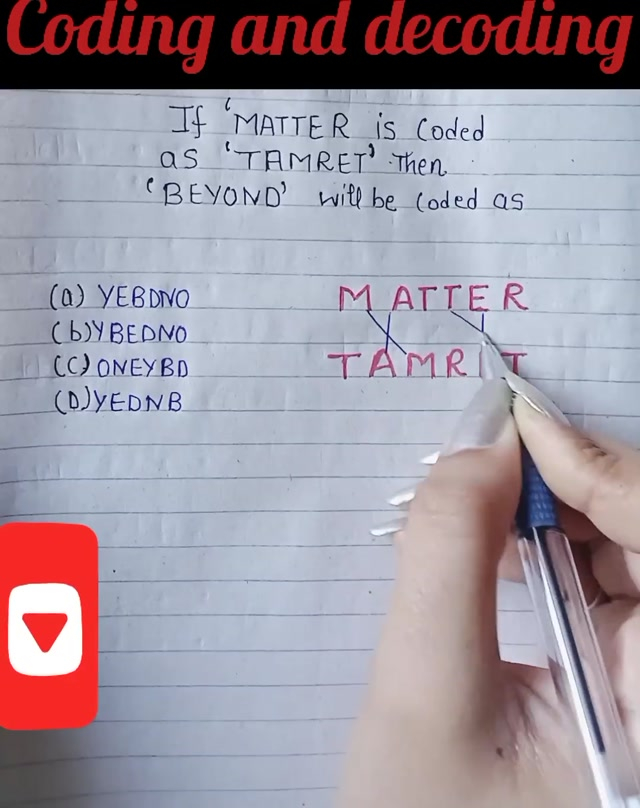 Coding and decoding
If 'MATTER is Coded
as 'TAMRET' Then
'BEYOND' will be Coded as
(a) YEBDNO
(b) YBEDNO
(C) ONEYBD
(D) YEDNB
MATTER
TAMR T